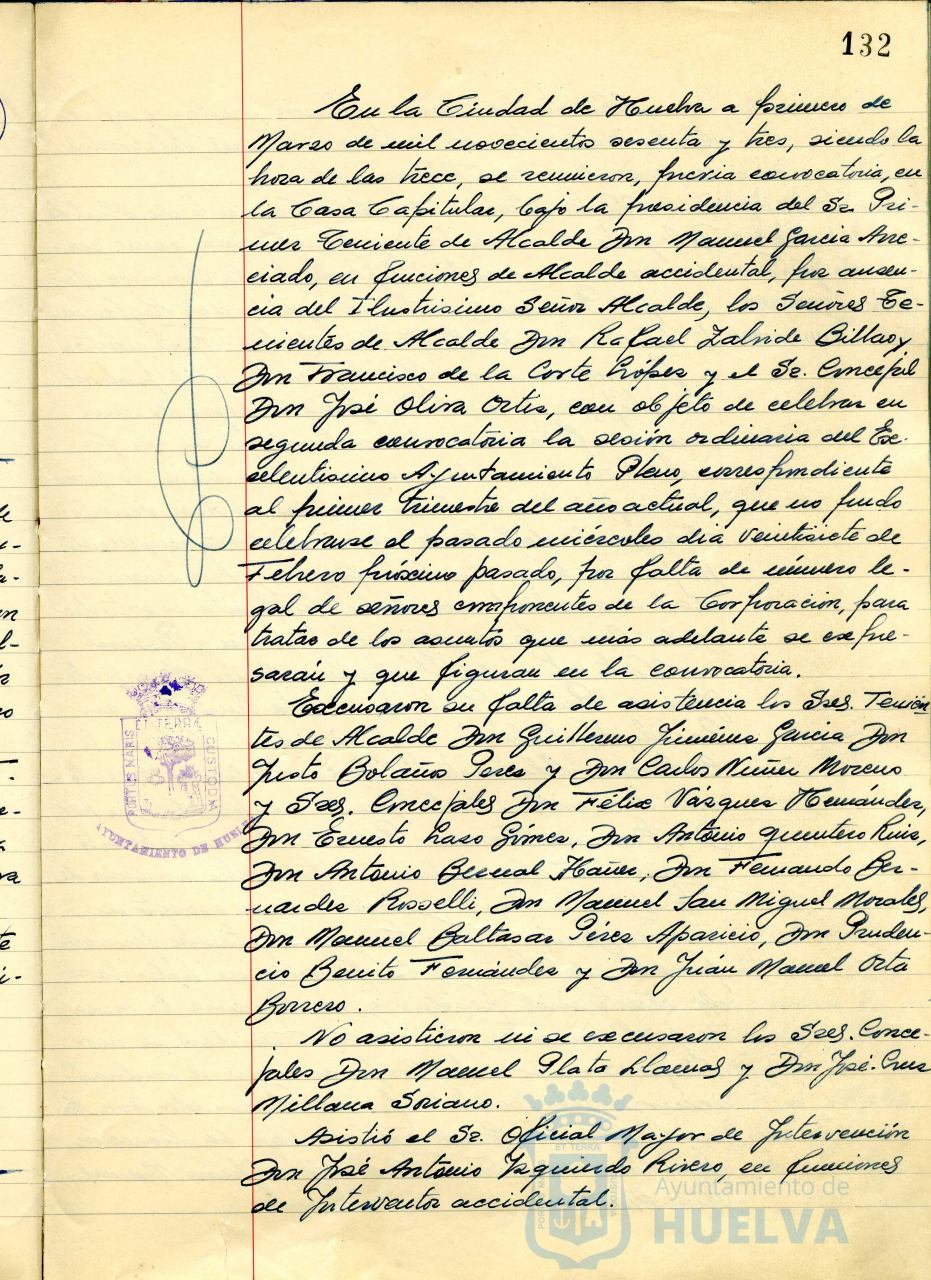 132
En la Ciudad de Huelva a primero de
Marzo de mil novecientos sesenta y tres, siendo la
hora de las trece, se reunieron, previa convocatoria, en
la Casa Capitular, bajo la presidencia del Sr. Pri-
mer Teniente de Alcalde Don Manuel Garcia Anre-
ciado, en funciones de Alcalde accidental, por ausen-
cia del Ilustrisimo Señor Alcalde, los Señores Te-
nientes de Alcalde Don Rafael Zalvide Bilbao y
Don Francisco de la Corte López y el Sr. Concejal
Don José Oliva Ortiz, con objeto de celebrar en
segunda convocatoria la sesión ordinaria del Ex-
celentisimo Ayuntamiento Pleno, correspondiente
al primer trimestre del año actual, que no pudo
celebrarse el pasado miércoles dia veintisiete de
Febrero próximo pasado, por falta de número le-
gal de señores componentes de la Corporación, para
tratar de los asuntos que más adelante se expre-
sarán y que figuran en la convocatoria.
Excusaron su falta de asistencia los Sres. Tenien-
tes de Alcalde Don Guillermo Jiménez Garcia Don
Justo Bolaños Perez y Don Carlos Nuñez Moreno
y Sres. Concejales Don Félix Vázquez Hernández,
Don Ernesto Lazo Gómez, Don Antonio Quintero Ruiz,
Don Antonio Bernal Don Fernando Ber-
nardez Rosselli, Don Manuel San Miguel Morales,
Don Manuel Baltasar Pérez Aparicio, Don Pruden-
cio Benito Fernández y Don Juán Manuel Orta
Borrero.
No asistieron ni se excusaron los Sres. Conce-
jales Don Manuel Plata Llamas y Don José-Cruz
Millana Soriano.
Asistió el Sr. Oficial Mayor de Intervención
Don José Antonio Izquierdo Rivero, en funciones
de Interventor accidental.
PORTUS MARIS
ET TERRÆ
CUSTODIA
AYUNTAMIENTO DE HUELVA
Ayuntamiento de
HUELVA